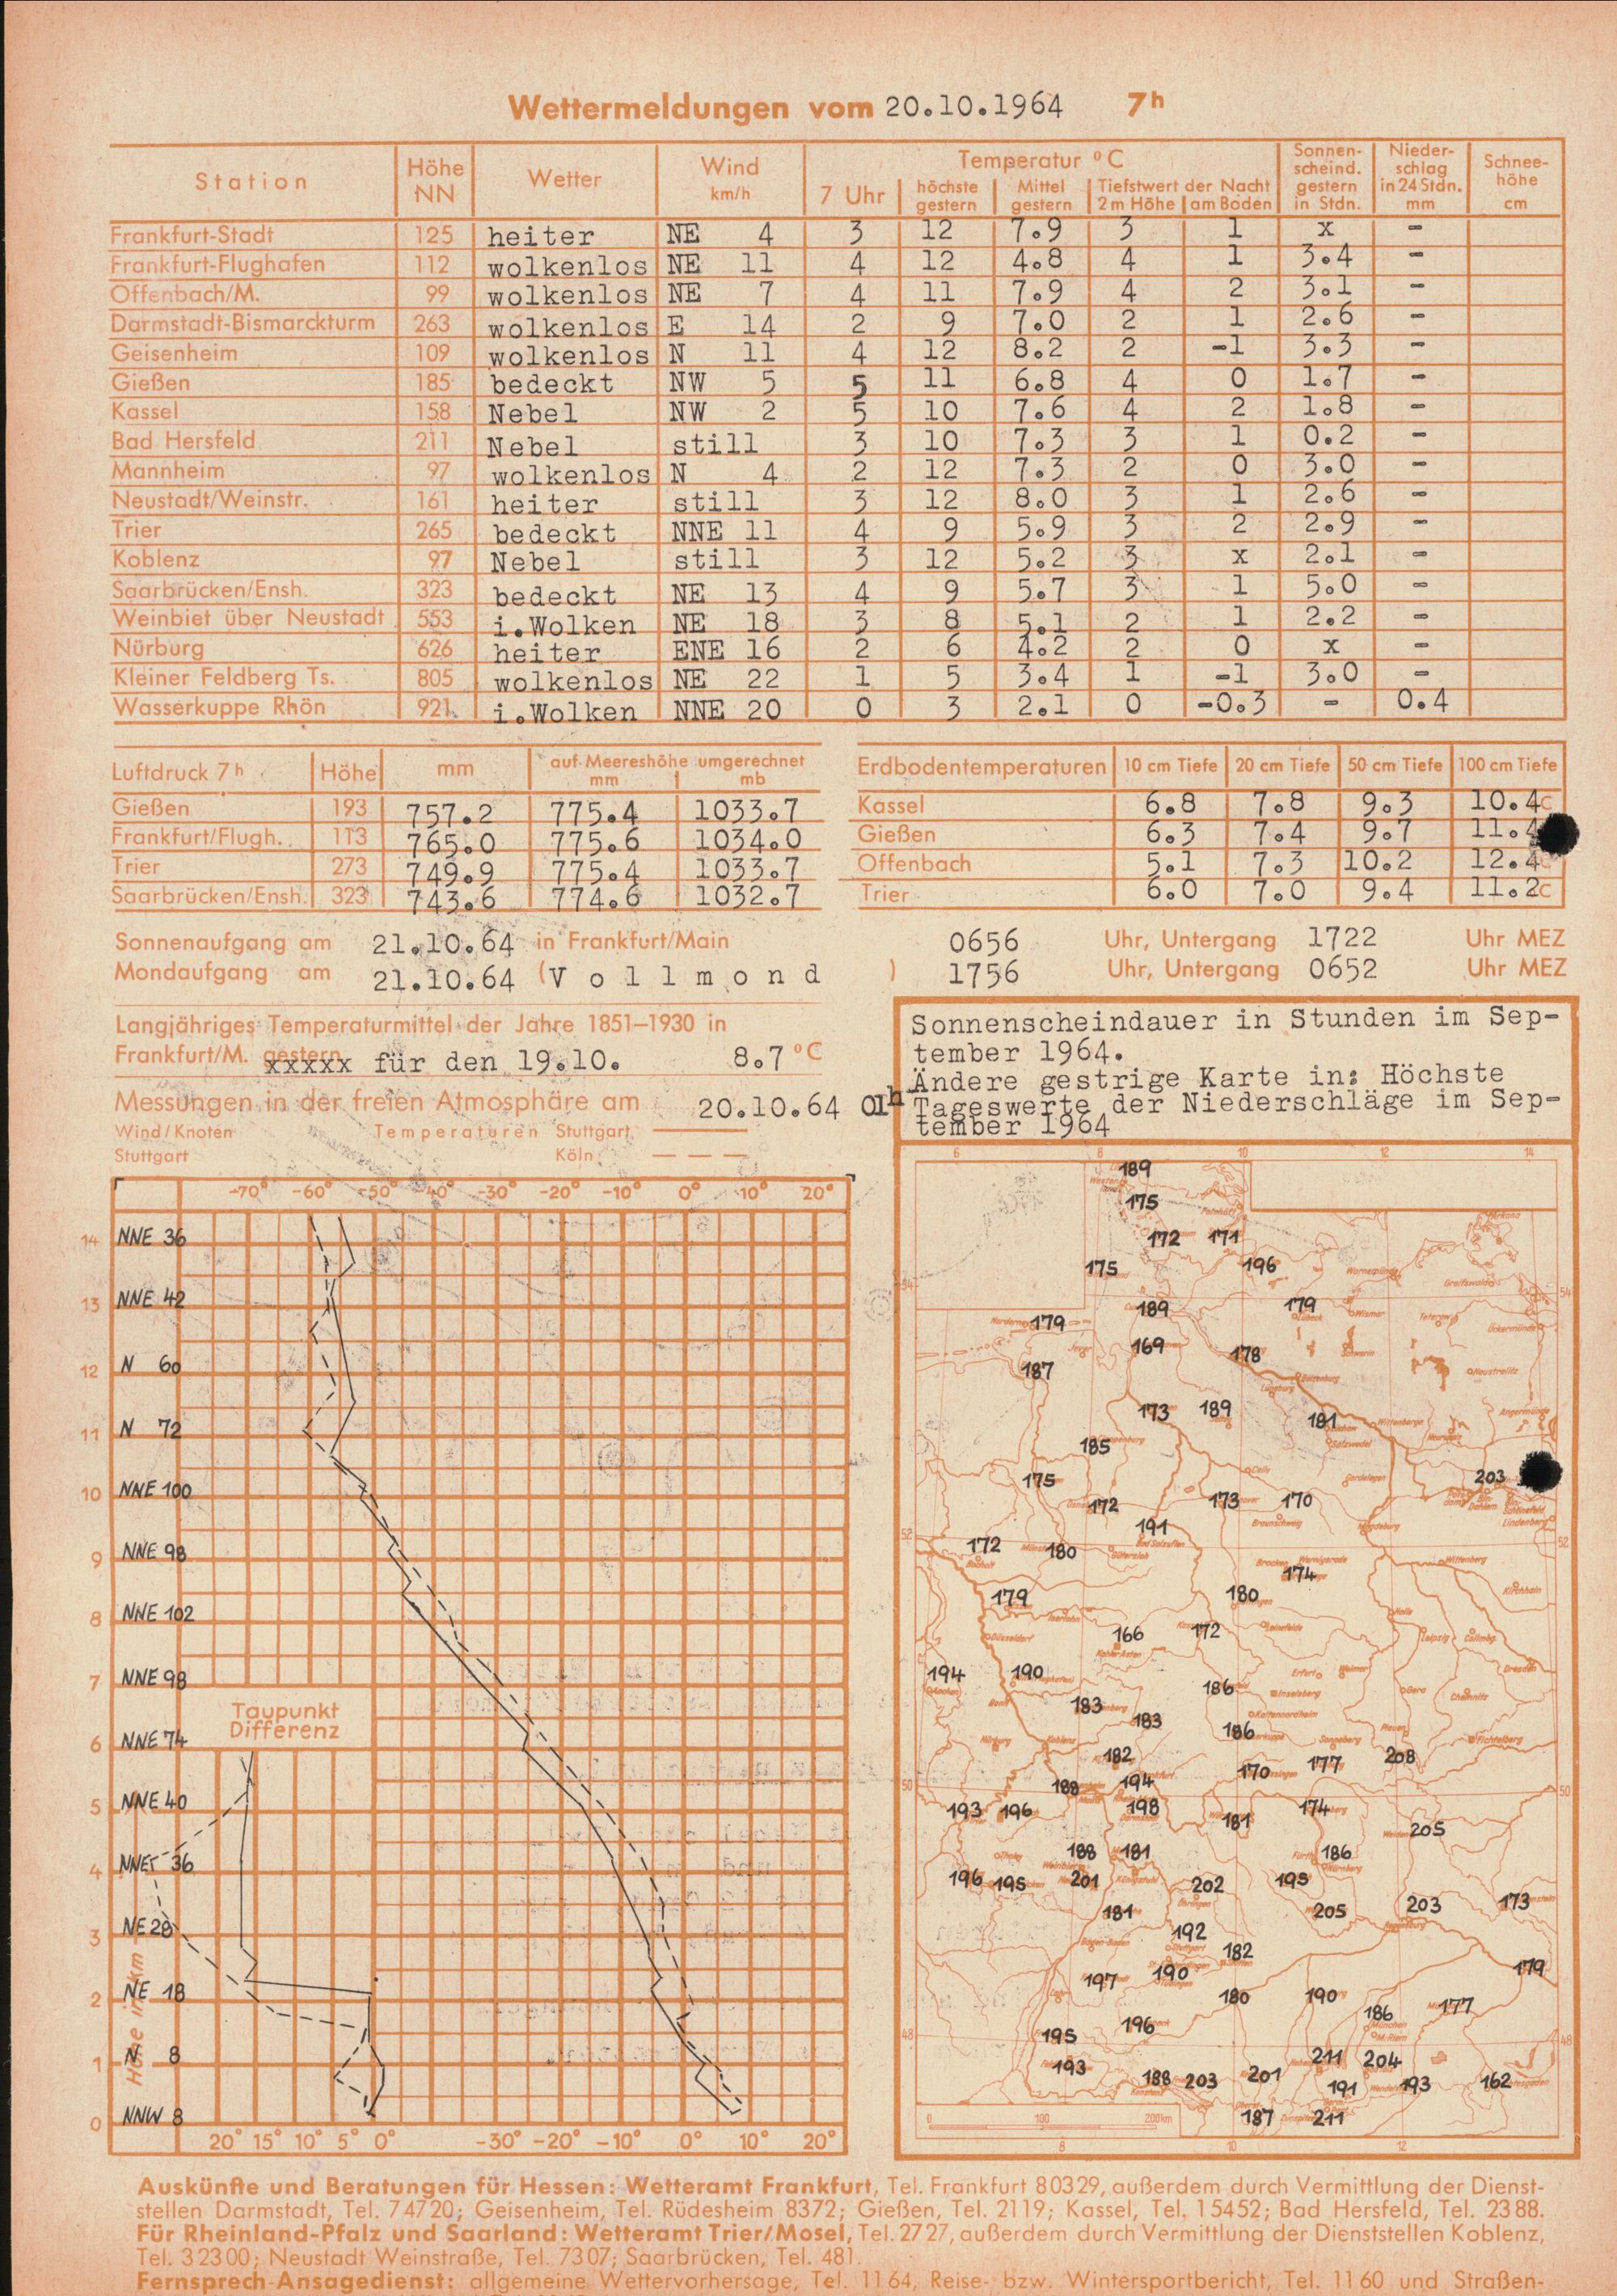 Wettermeldungen vom 20.10.1964 7h
Station Höhe NN Wetter Wind km/h Temperatur °C Sonnenscheind. gestern in Stdn. Niederschlag in 24 Stdn. mm Schneehöhe cm
7 Uhr höchste gestern Mittel gestern Tiefstwert der Nacht 2 m Höhe am Boden
Frankfurt-Stadt 125 heiter NE 4 3 12 7.9 3 1 x -
Frankfurt-Flughafen 112 wolkenlos NE 11 4 12 4.8 4 1 3.4 -
Offenbach/M. 99 wolkenlos NE 7 4 11 7.9 4 2 3.1 -
Darmstadt-Bismarckturm 263 wolkenlos E 14 2 9 7.0 2 1 2.6 -
Geisenheim 109 wolkenlos N 11 4 12 8.2 2 -1 3.3 -
Gießen 185 bedeckt NW 5 5 11 6.8 4 0 1.7 -
Kassel 158 Nebel NW 2 5 10 7.6 4 2 1.8 -
Bad Hersfeld 211 Nebel still 3 10 7.3 3 1 0.2 -
Mannheim 97 wolkenlos N 4 2 12 7.3 2 0 3.0 -
Neustadt/Weinstr. 161 heiter still 3 12 8.0 3 1 2.6 -
Trier 265 bedeckt NNE 11 4 9 5.9 3 2 2.9 -
Koblenz 97 Nebel still 3 12 5.2 3 x 2.1 -
Saarbrücken/Ensh. 323 bedeckt NE 13 4 9 5.7 3 1 5.0 -
Weinbiet über Neustadt 553 i.Wolken NE 18 3 8 5.1 2 1 2.2 -
Nürburg 626 heiter ENE 16 2 6 4.2 2 0 x -
Kleiner Feldberg Ts. 805 wolkenlos NE 22 1 5 3.4 1 -1 3.0 -
Wasserkuppe Rhön 921 i.Wolken NNE 20 0 3 2.1 0 -0.3 - 0.4
Luftdruck 7h Höhe mm auf Meereshöhe umgerechnet mm mb
Gießen 193 757.2 775.4 1033.7
Frankfurt/Flugh. 113 765.0 775.6 1034.0
Trier 273 749.9 775.4 1033.7
Saarbrücken/Ensh. 323 743.6 774.6 1032.7
Erdbodentemperaturen 10 cm Tiefe 20 cm Tiefe 50 cm Tiefe 100 cm Tiefe
Kassel 6.8 7.8 9.3 10.4C
Gießen 6.3 7.4 9.7 11.4
Offenbach 5.1 7.3 10.2 12.4C
Trier 6.0 7.0 9.4 11.2C
Sonnenaufgang am 21.10.64 in Frankfurt/Main 0656 Uhr, Untergang 1722 Uhr MEZ
Mondaufgang am 21.10.64 (Vollmond) 1756 Uhr, Untergang 0652 Uhr MEZ
Langjähriges Temperaturmittel der Jahre 1851–1930 in
Frankfurt/M. gestern xxxxx für den 19.10. 8.7 °C
Messungen in der freien Atmosphäre am 20.10.64 01h
Wind/Knoten Temperaturen Stuttgart
Stuttgart Köln
Sonnenscheindauer in Stunden im Sep-
tember 1964.
Ändere gestrige Karte in: Höchste
Tageswerte der Niederschläge im Sep-
tember 1964
-70° -60° -50° -40° -30° -20° -10° 0° 10° 20°
14 NNE 36
13 NNE 42
12 N 60
11 N 72
10 NNE 100
9 NNE 98
8 NNE 102
7 NNE 98
Taupunkt
Differenz
6 NNE 74
5 NNE 40
4 NNE 36
3 NE 28
2 NE 18
1 N 8
0 NNW 8
Höhe in km
20° 15° 10° 5° 0° -30° -20° -10° 0° 10° 20°
6 8 10 12 14
189
175
172 171
175 196
54 54
189 179
179
169 178
187
173 189 181
185
175 203
172 173 170
191
52 52
172 180
174
179 180
166 172
194 190 186
183 183
186
182 177 208
170
50 50
188 194
193 196 198 174
181 205
188 181 186
196 195 201 202 195
181 205 203 173
192
182
197 190 179
180 190
186 177
196
48 48
195
193 211 204
188 203 201 191 193 162
187 211
0 100 200 km
8 10 12
Auskünfte und Beratungen für Hessen: Wetteramt Frankfurt, Tel. Frankfurt 80329, außerdem durch Vermittlung der Dienst-
stellen Darmstadt, Tel. 74720; Geisenheim, Tel. Rüdesheim 8372; Gießen, Tel. 2119; Kassel, Tel. 15452; Bad Hersfeld, Tel. 2388.
Für Rheinland-Pfalz und Saarland: Wetteramt Trier/Mosel, Tel. 2727, außerdem durch Vermittlung der Dienststellen Koblenz,
Tel. 32300; Neustadt Weinstraße, Tel. 7307; Saarbrücken, Tel. 481.
Fernsprech-Ansagedienst: allgemeine Wettervorhersage, Tel. 1164, Reise- bzw. Wintersportbericht, Tel. 1160 und Straßen-